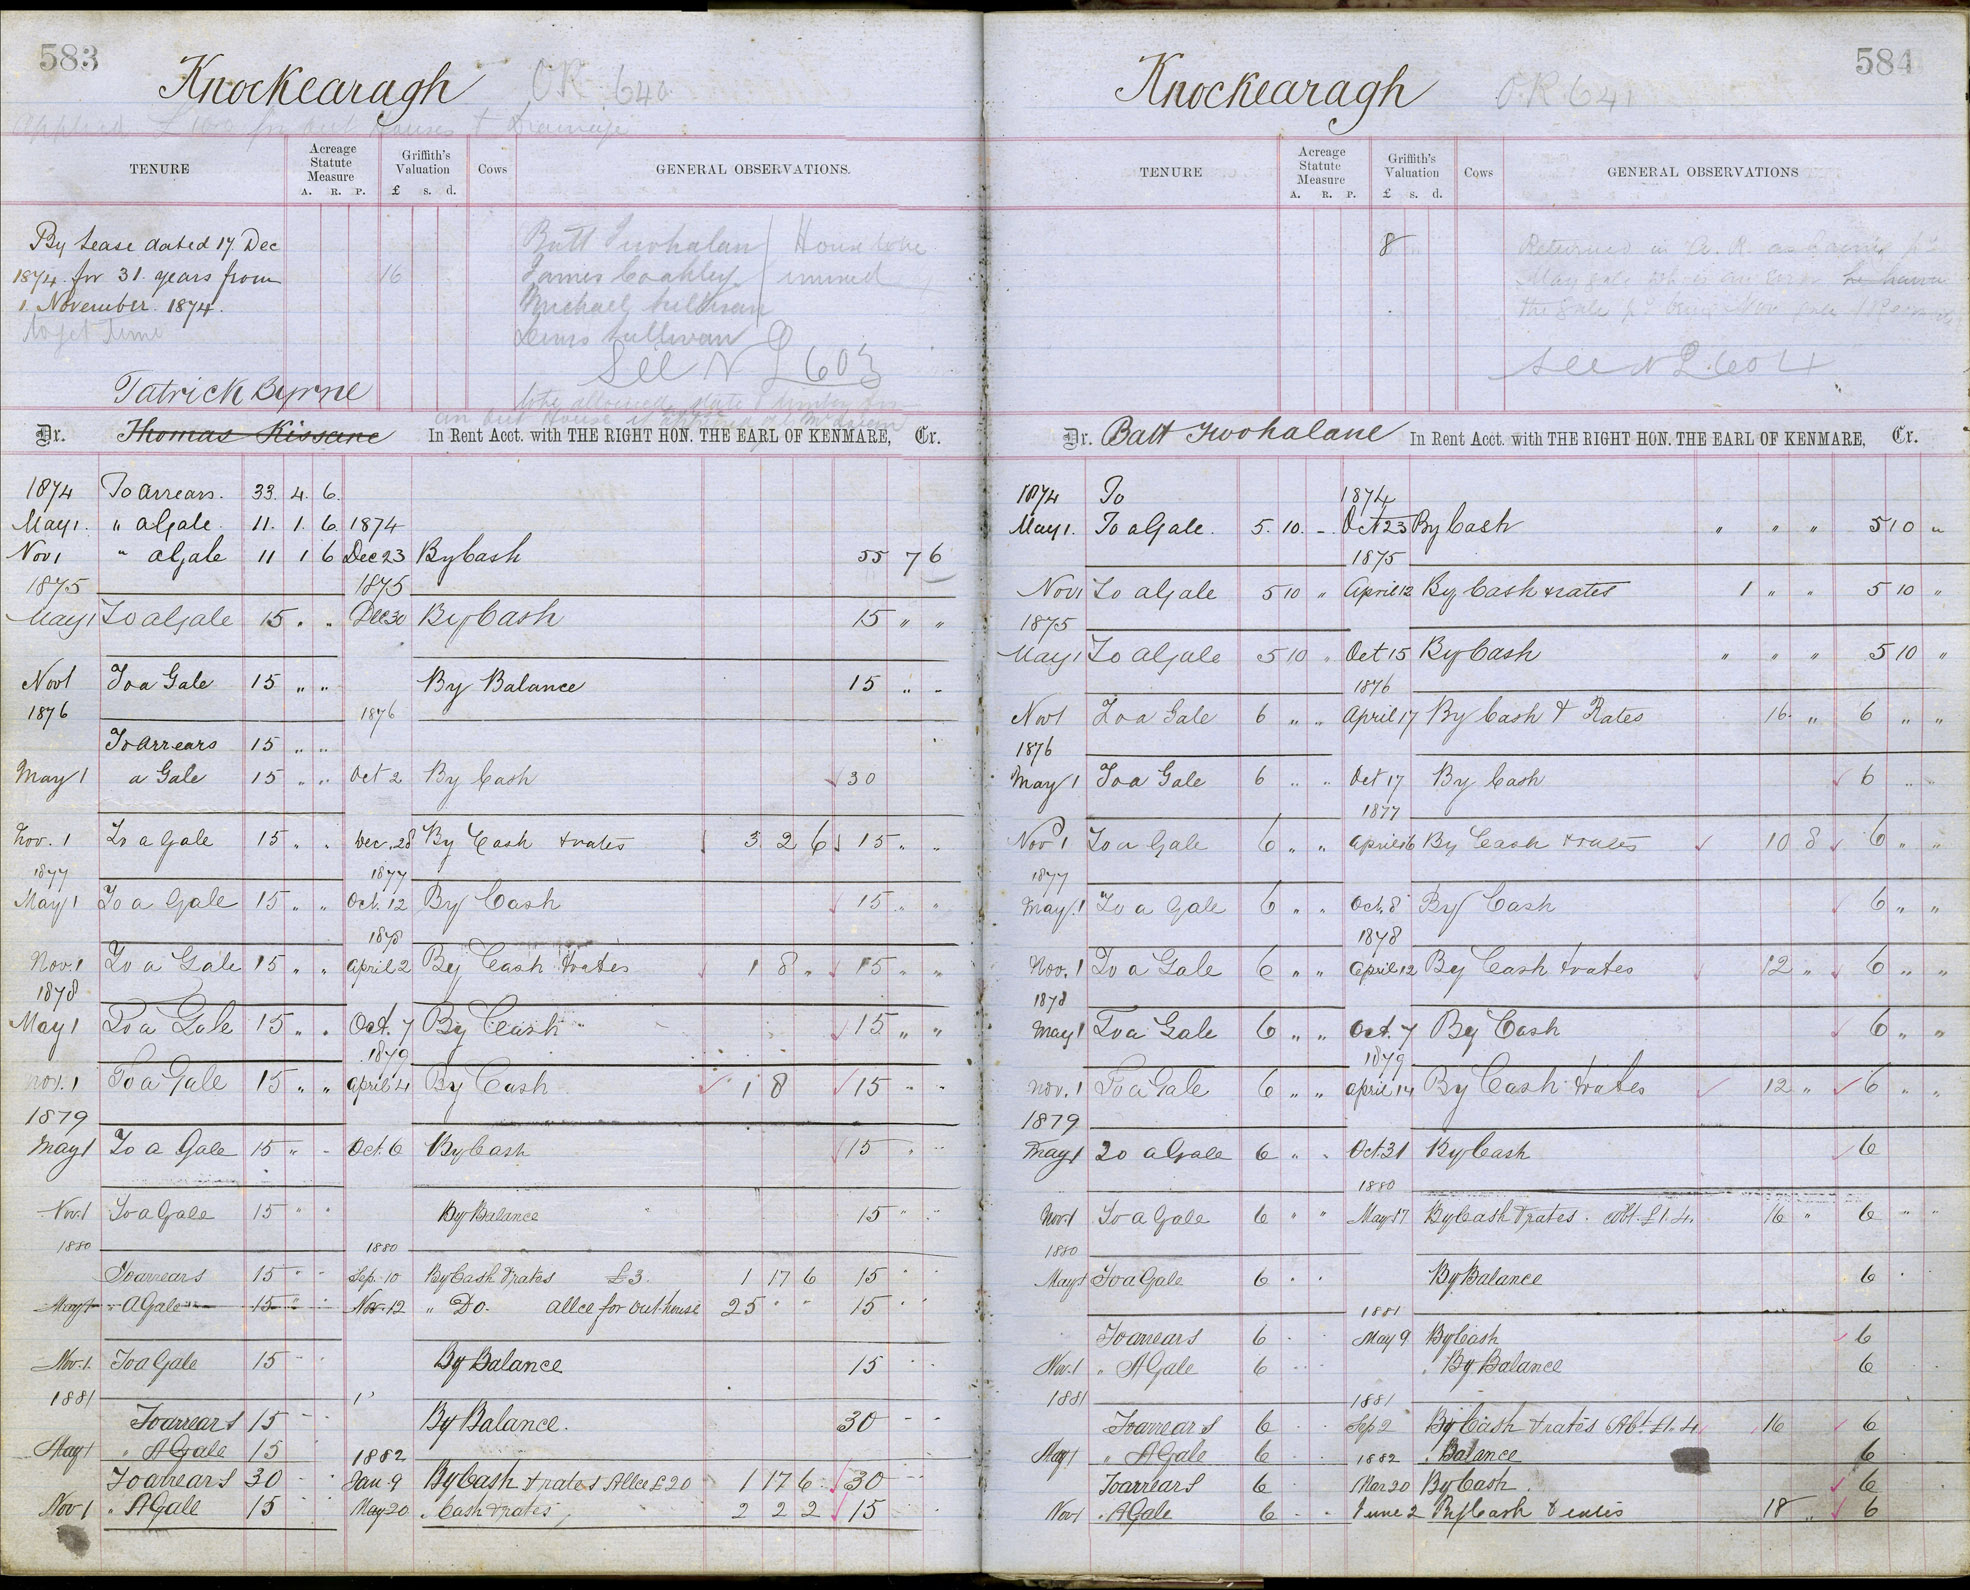 583
Knockearagh OR 640
Applied £100 for out Houses & Drainage
TENURE
Acreage Statute Measure
A. R. P.
Griffith's Valuation
£ s. d.
Cows
GENERAL OBSERVATIONS.
By Lease dated 17 Dec
1874 for 31 years from
1 November 1874.
to get Time
16
Batt Twohalan
James Coakley
Michael Sullivan
Denis Sullivan
See N L 603
Patrick Byrne
Dr. Thomas Kissane In Rent Acct. with THE RIGHT HON. THE EARL OF KENMARE, Cr.
1874 To arrears. 33. 4. 6.
May 1. " a Gale. 11. 1. 6. 1874
Nov 1 " a Gale 11 1 6 Dec 23 By Cash 55 7 6
1875 1875
May 1 To a Gale 15 . . Dec 30 By Cash 15 " "
Nov 1 To a Gale 15 " " By Balance 15 " "
1876 1876
To arrears 15 " "
May 1 a Gale 15 " " Oct 2 By Cash 30
Nov. 1 To a Gale 15 " . Dec. 28 By Cash & rates 3 2 6 15 " "
1877 1877
May 1 To a Gale 15 " " Oct. 12 By Cash 15 " "
1878
Nov. 1 To a Gale 15 " " April 2 By Cash & rates 1 8 " 15 " "
1878
May 1 To a Gale 15 " " Oct. 7 By Cash 15 " "
1879
Nov. 1 To a Gale 15 " " April 4 By Cash 1 8 15 " "
1879
May 1 To a Gale 15 " - Oct. 6 By Cash 15 " "
Nov. 1 To a Gale 15 " " By Balance 15 " "
1880 1880
To arrears 15 " " Sep. 10 By Cash & rates £3. 1 17 6 15 " "
May 1 " A Gale 15 " " Nov. 12 " Do. allce for out-house 25 " " 15 " "
Nov. 1 To a Gale 15 - - By Balance 15 " "
1881
To arrears 15 - - By Balance. 30 - -
May 1 " A Gale 15 1882
To arrears 30 - - Jan. 9 By Cash & rates Allce £20 1 17 6 30 - -
Nov 1 " A Gale 15 May 20 " Cash & rates 2 2 2 15
584
Knockearagh O.R 641
TENURE
Acreage Statute Measure
A. R. P.
Griffith's Valuation
£ s. d.
Cows
GENERAL OBSERVATIONS
8 "
See N L 604
Dr. Batt Twohalane In Rent Acct. with THE RIGHT HON. THE EARL OF KENMARE, Cr.
1874 To 1874
May 1. To a Gale. 5. 10. - Oct 23 By Cash " " " 5 10 "
1875
Nov 1 To a Gale 5 10 " April 12 By Cash & rates 1 " " 5 10 "
1875
May 1 To a Gale 5 10 " Oct 15 By Cash " " " 5 10 "
1876
Nov 1 To a Gale 6 " " April 17 By Cash & Rates 16. " 6 " "
1876
May 1 To a Gale 6 " " Oct 17 By Cash 6 " "
1877
Nov 1 To a Gale 6 " " April 16 By Cash & rates 10 8 6 " "
1877
May 1 To a Gale 6 " " Oct. 8 By Cash 6 " "
1878
Nov. 1 To a Gale 6 " " April 12 By Cash & rates 12 " 6 " "
1878
May 1 To a Gale 6 " " Oct. 7 By Cash 6 " "
1879
Nov. 1 To a Gale 6 " " April 14 By Cash & rates 12 " 6 " "
1879
May 1 To a Gale 6 " . Oct. 31 By Cash 6
1880
Nov. 1 To a Gale 6 " " May 17 By Cash & rates. Abt. £1.4. 16 " 6 " "
1880
May 1 To a Gale 6 " " By Balance 6
1881
To arrears 6 May 9 By Cash 6
Nov. 1 " A Gale 6 " By Balance 6
1881 1881
To arrears 6 Sep 2 By Cash & rates Abt. £1.4 16 6
May 1 " A Gale 6 1882 " Balance 6
To arrears 6 Mar 20 By Cash. 6
Nov 1 " A Gale 6 June 2 By Cash & rates 18 " 6